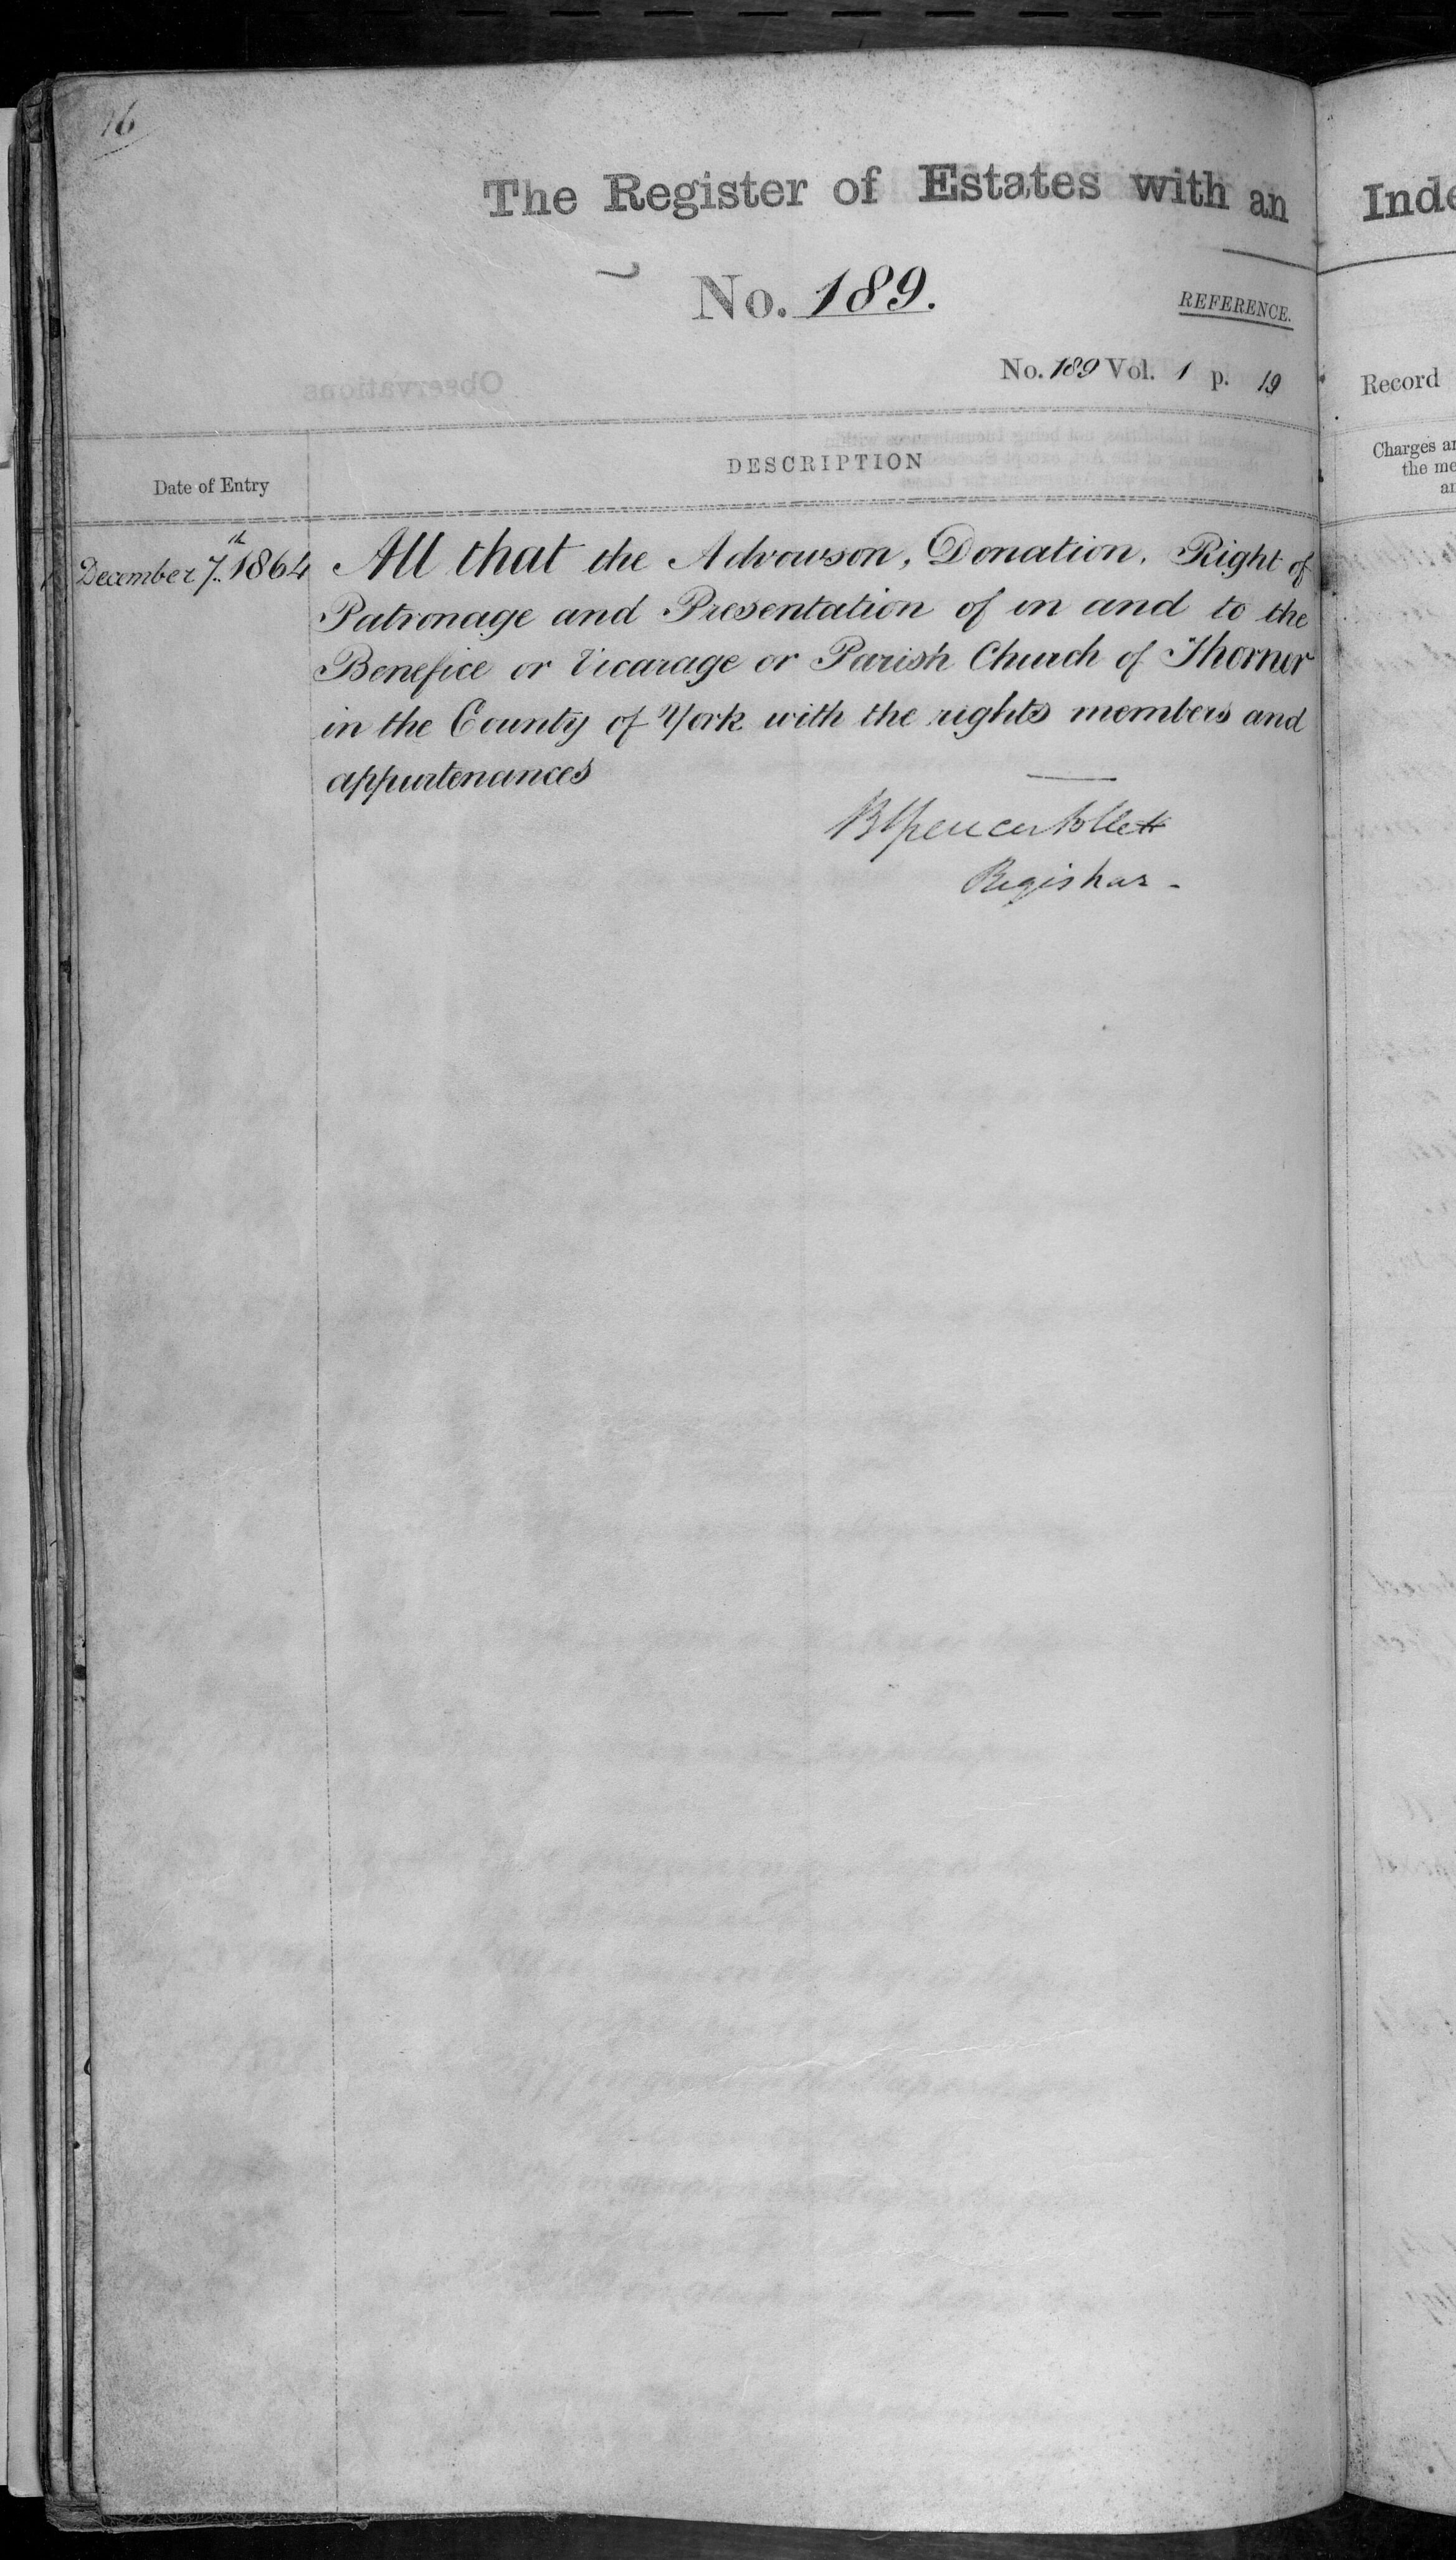 16
The Register of Estates with an
No. 189.
REFERENCE.
No. 189 Vol. 1 p. 19
Observations
Date of Entry
DESCRIPTION
December 7th 1864
All that the Advowson, Donation, Right of
Patronage and Presentation of in and to the
Benefice or Vicarage or Parish Church of Thorner
in the County of York with the rights members and
appurtenances
B Spencer Follett
Registrar -
Inde
Record
Charges an
the me
an